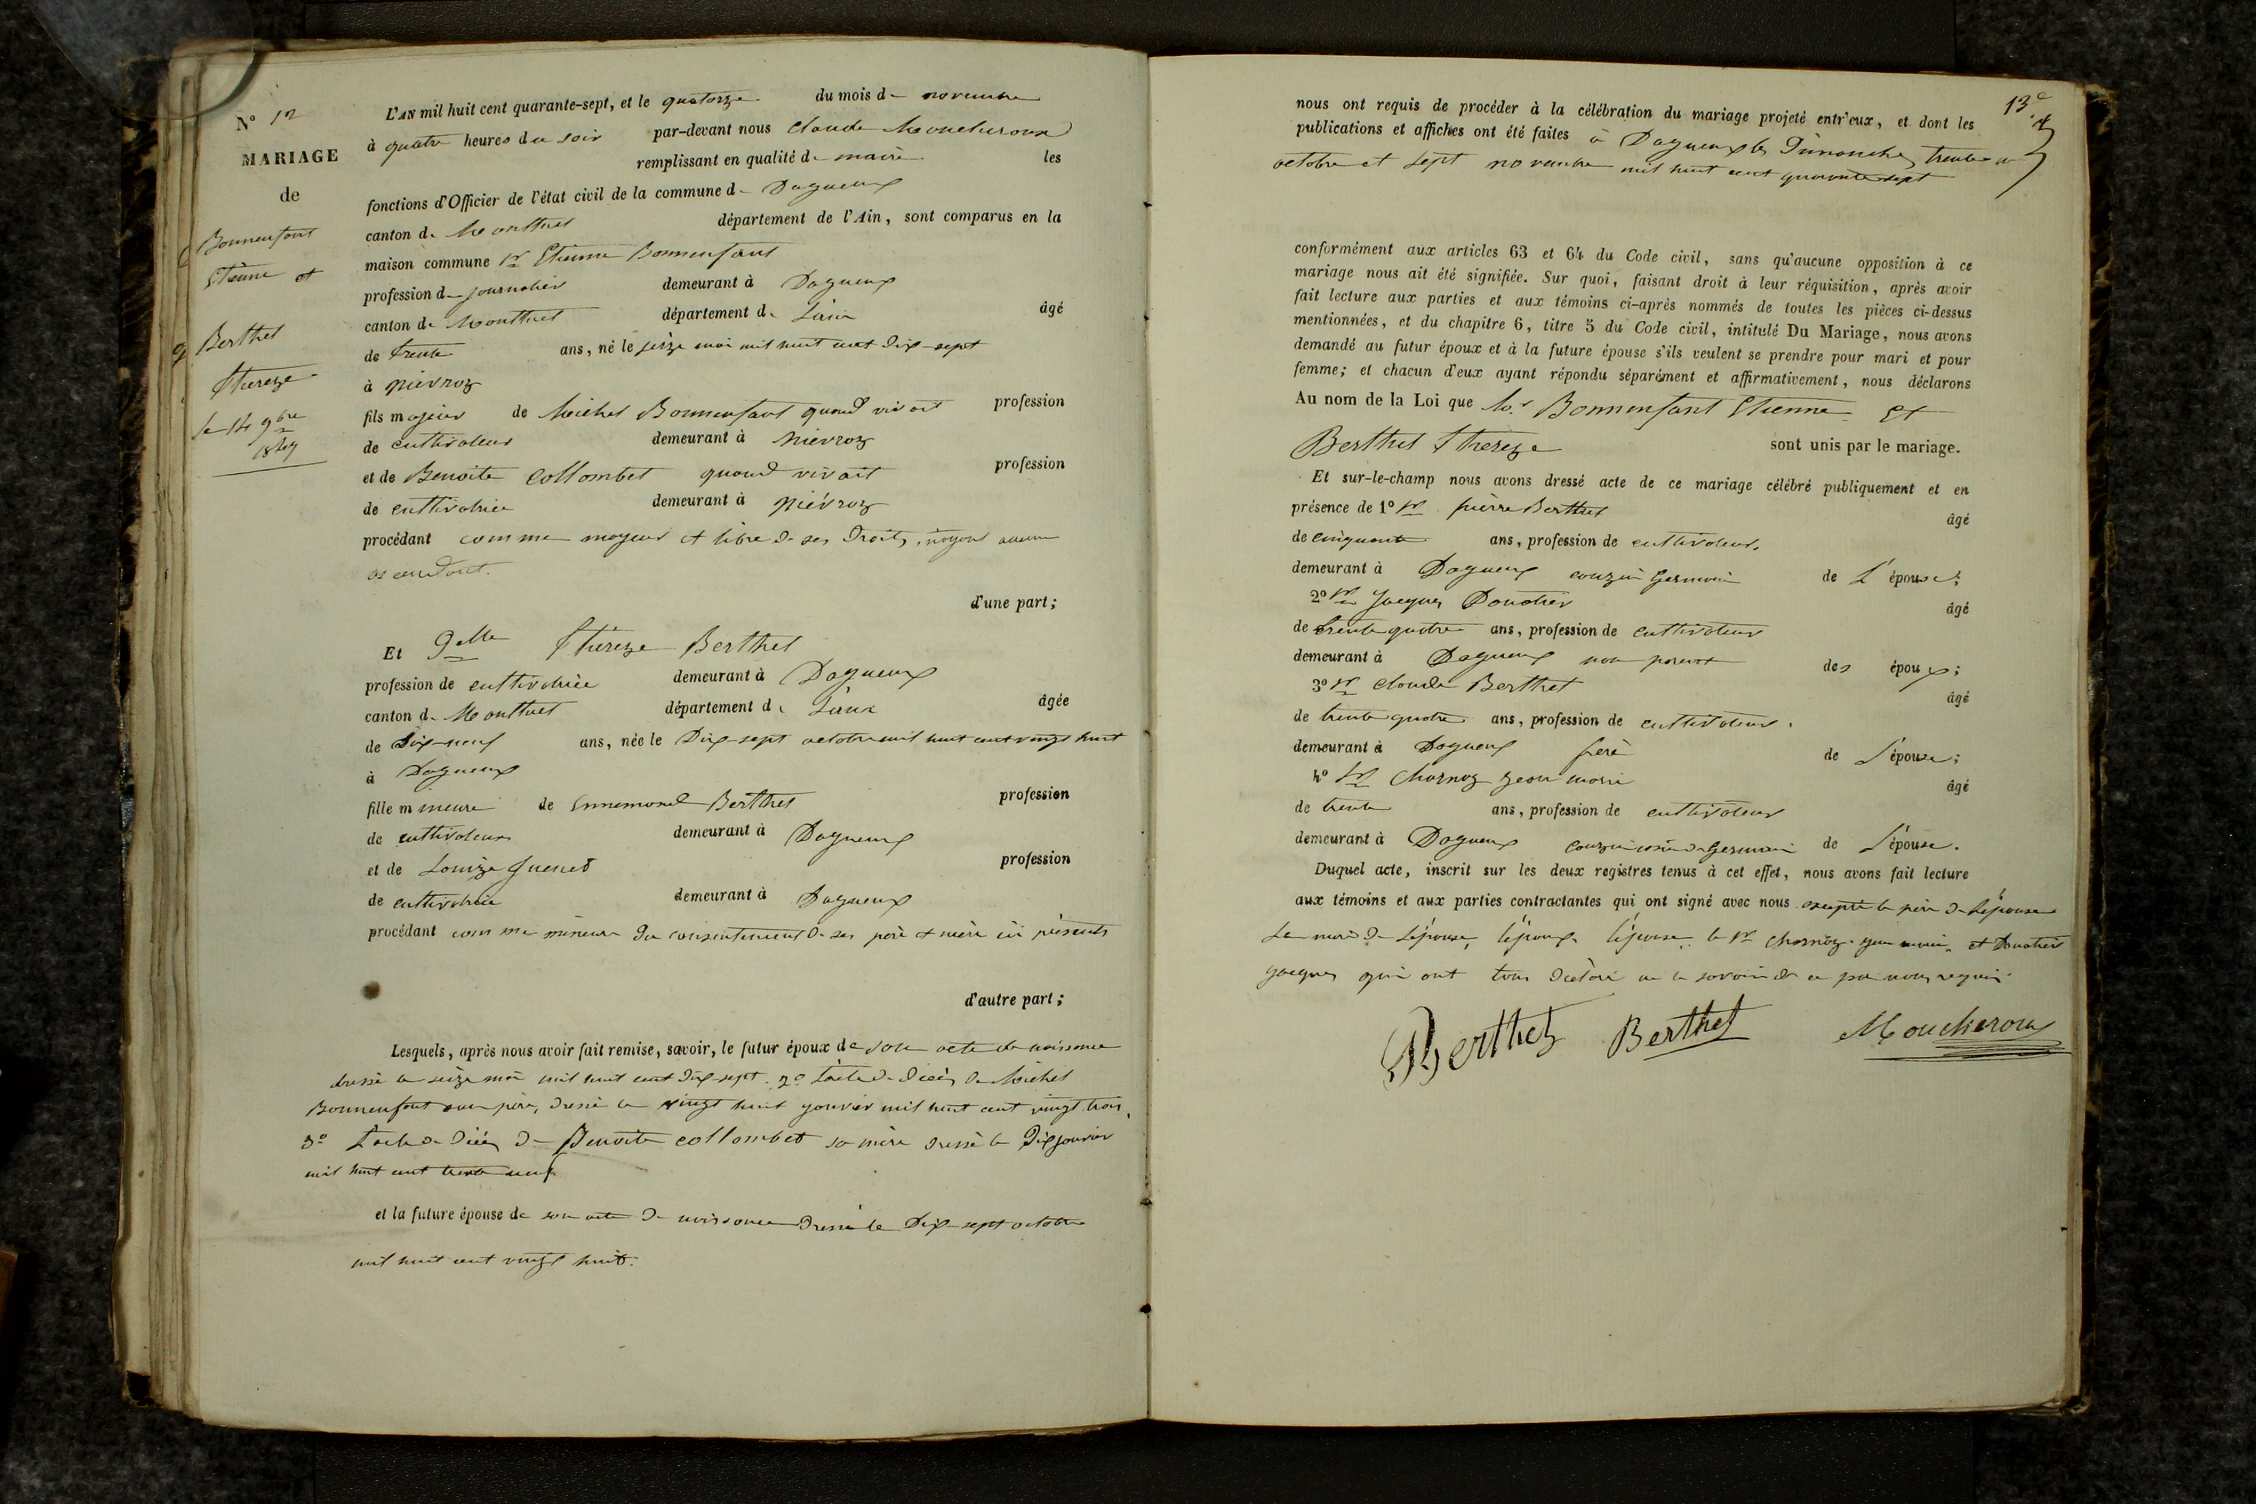 N° 12
MARIAGE
de
Bonnenfant
Etienne et
Berthet
Thereze
le 14 9bre
1847
L'AN mil huit cent quarante-sept, et le quatorze du mois de novembre
à quatre heures du soir par-devant nous Claude Moucheroux
remplissant en qualité de maire les
fonctions d'Officier de l'état civil de la commune de Dagneux
canton de Montluel département de l'Ain, sont comparus en la
maison commune Sr Etienne Bonnenfant
profession de journalier demeurant à Dagneux
canton de Montluel département de L'ain âgé
de trente ans, né le seize mai mil huit cent dix-sept
à Niévroz
fils majeur de Michel Bonnenfant quand vivait profession
de cultivateur demeurant à Niévroz
et de Benoite Collombet quand vivait profession
de cultivatrice demeurant à Niévroz
procédant comme majeur et libre de ses droits, n'ayant aucun
ascendant.
d'une part;
Et Delle Thérèze Berthet
profession de cultivatrice demeurant à Dagneux
canton de Montluel département de L'ain âgée
de Dix-neuf ans, née le Dix-sept octobre mil huit cent vingt huit
à Dagneux
fille mineure de Ennemond Berthet profession
de cultivateur demeurant à Dagneux
et de Louize Guenet profession
de cultivatrice demeurant à Dagneux
procédant comme mineure du consentement de ses père et mère ici présents
d'autre part;
Lesquels, après nous avoir fait remise, savoir, le futur époux de son acte de naissance
dressé le seize mai mil huit cent dix-sept. 2° L'acte de décès de Michel
Bonnenfant son père, dressé le vingt huit janvier mil huit cent vingt trois,
3° L'acte de décès de Benoite Collombet sa mère dressé le Dix janvier
mil huit cent trente neuf
et la future épouse de son acte de naissance dressé le Dix-sept octobre
mil huit cent vingt huit.
13e
nous ont requis de procéder à la célébration du mariage projeté entr'eux, et dont les
publications et affiches ont été faites à Dagneux les Dimanches trente un
octobre et sept novembre mil huit cent quarante sept
conformément aux articles 63 et 64 du Code civil, sans qu'aucune opposition à ce
mariage nous ait été signifiée. Sur quoi, faisant droit à leur réquisition, après avoir
fait lecture aux parties et aux témoins ci-après nommés de toutes les pièces ci-dessus
mentionnées, et du chapitre 6, titre 5 du Code civil, intitulé Du Mariage, nous avons
demandé au futur époux et à la future épouse s'ils veulent se prendre pour mari et pour
femme; et chacun d'eux ayant répondu séparément et affirmativement, nous déclarons
Au nom de la Loi que Bonnenfant Etienne Et
Berthet Thérèze sont unis par le mariage.
Et sur-le-champ nous avons dressé acte de ce mariage célébré publiquement et en
présence de 1° Sr pierre Berthet âgé
de cinquante ans, profession de cultivateur.
demeurant à Dagneux couzin Germain de L'épouse;
2° Sr Jacques Donatier âgé
de trente quatre ans, profession de cultivateur
demeurant à Dagneux non parent des époux;
3° Sr Claude Berthet âgé
de trente quatre ans, profession de cultivateur.
demeurant à Dagneux frère de L'épouse;
4° Sr Charnoz Jean marie âgé
de trente ans, profession de cultivateur
demeurant à Dagneux couzin Germain de L'épouse.
Duquel acte, inscrit sur les deux registres tenus à cet effet, nous avons fait lecture
aux témoins et aux parties contractantes qui ont signé avec nous excepté le père de L'épouse
La mère de L'épouse, L'époux, L'épouse, le Sr Charnoz Jean marie, et Donatier
Jacques qui ont tous déclaré ne le savoir de ce par nous requis.
Berthet Berthet Moucheroux